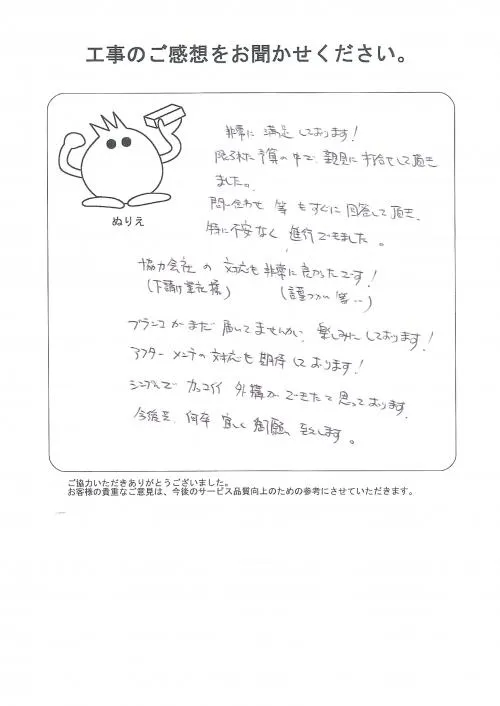 工事のご感想をお聞かせください。
非常に満足しております！
限られた予算の中で、親身に打合せして頂き
ました。
問い合わせ等もすぐに回答して頂き、
特に不安なく進行できました。
ぬりえ
協力会社の対応も非常に良かったです！
(下請け業社様)
ブランコがまだ届いてませんが、楽しみにしております！
アフターメンテの対応も期待しております！
シンプルでカッコイイ外構ができたと思っております。
今後共、何卒宜しく御願い致します。
ご協力いただきありがとうございました。
お客様の貴重なご意見は、今後のサービス品質向上のための参考にさせていただきます。